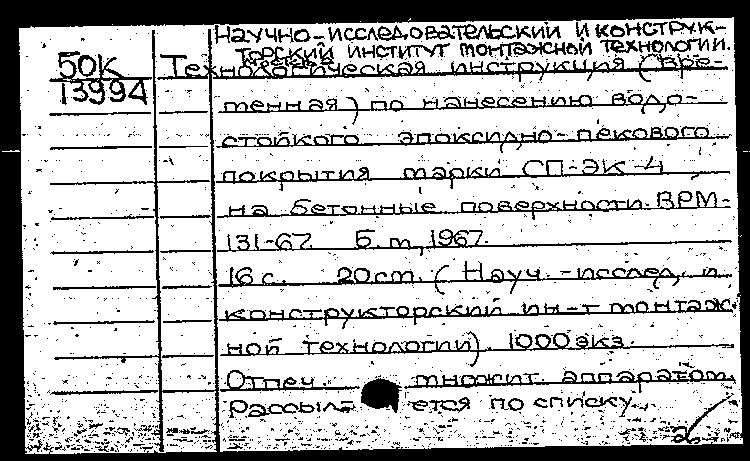 Научно-исследовательский и конструк-
торский институт монтажной технологии.
50К
13994
Технологическая инструкция (вре-
менная) по нанесению водо-
стойкого эпоксидно-пекового
покрытия марки СП-ЭК-4
на бетонные поверхности. ВРМ-
131-67. Б.м., 1967.
16 с. 20 см. (Науч.-исслед. и
конструкторский ин-т монтаж
ной технологии). 1000 экз.
Отпеч. множит. аппаратом.
Рассыл- ется по списку.